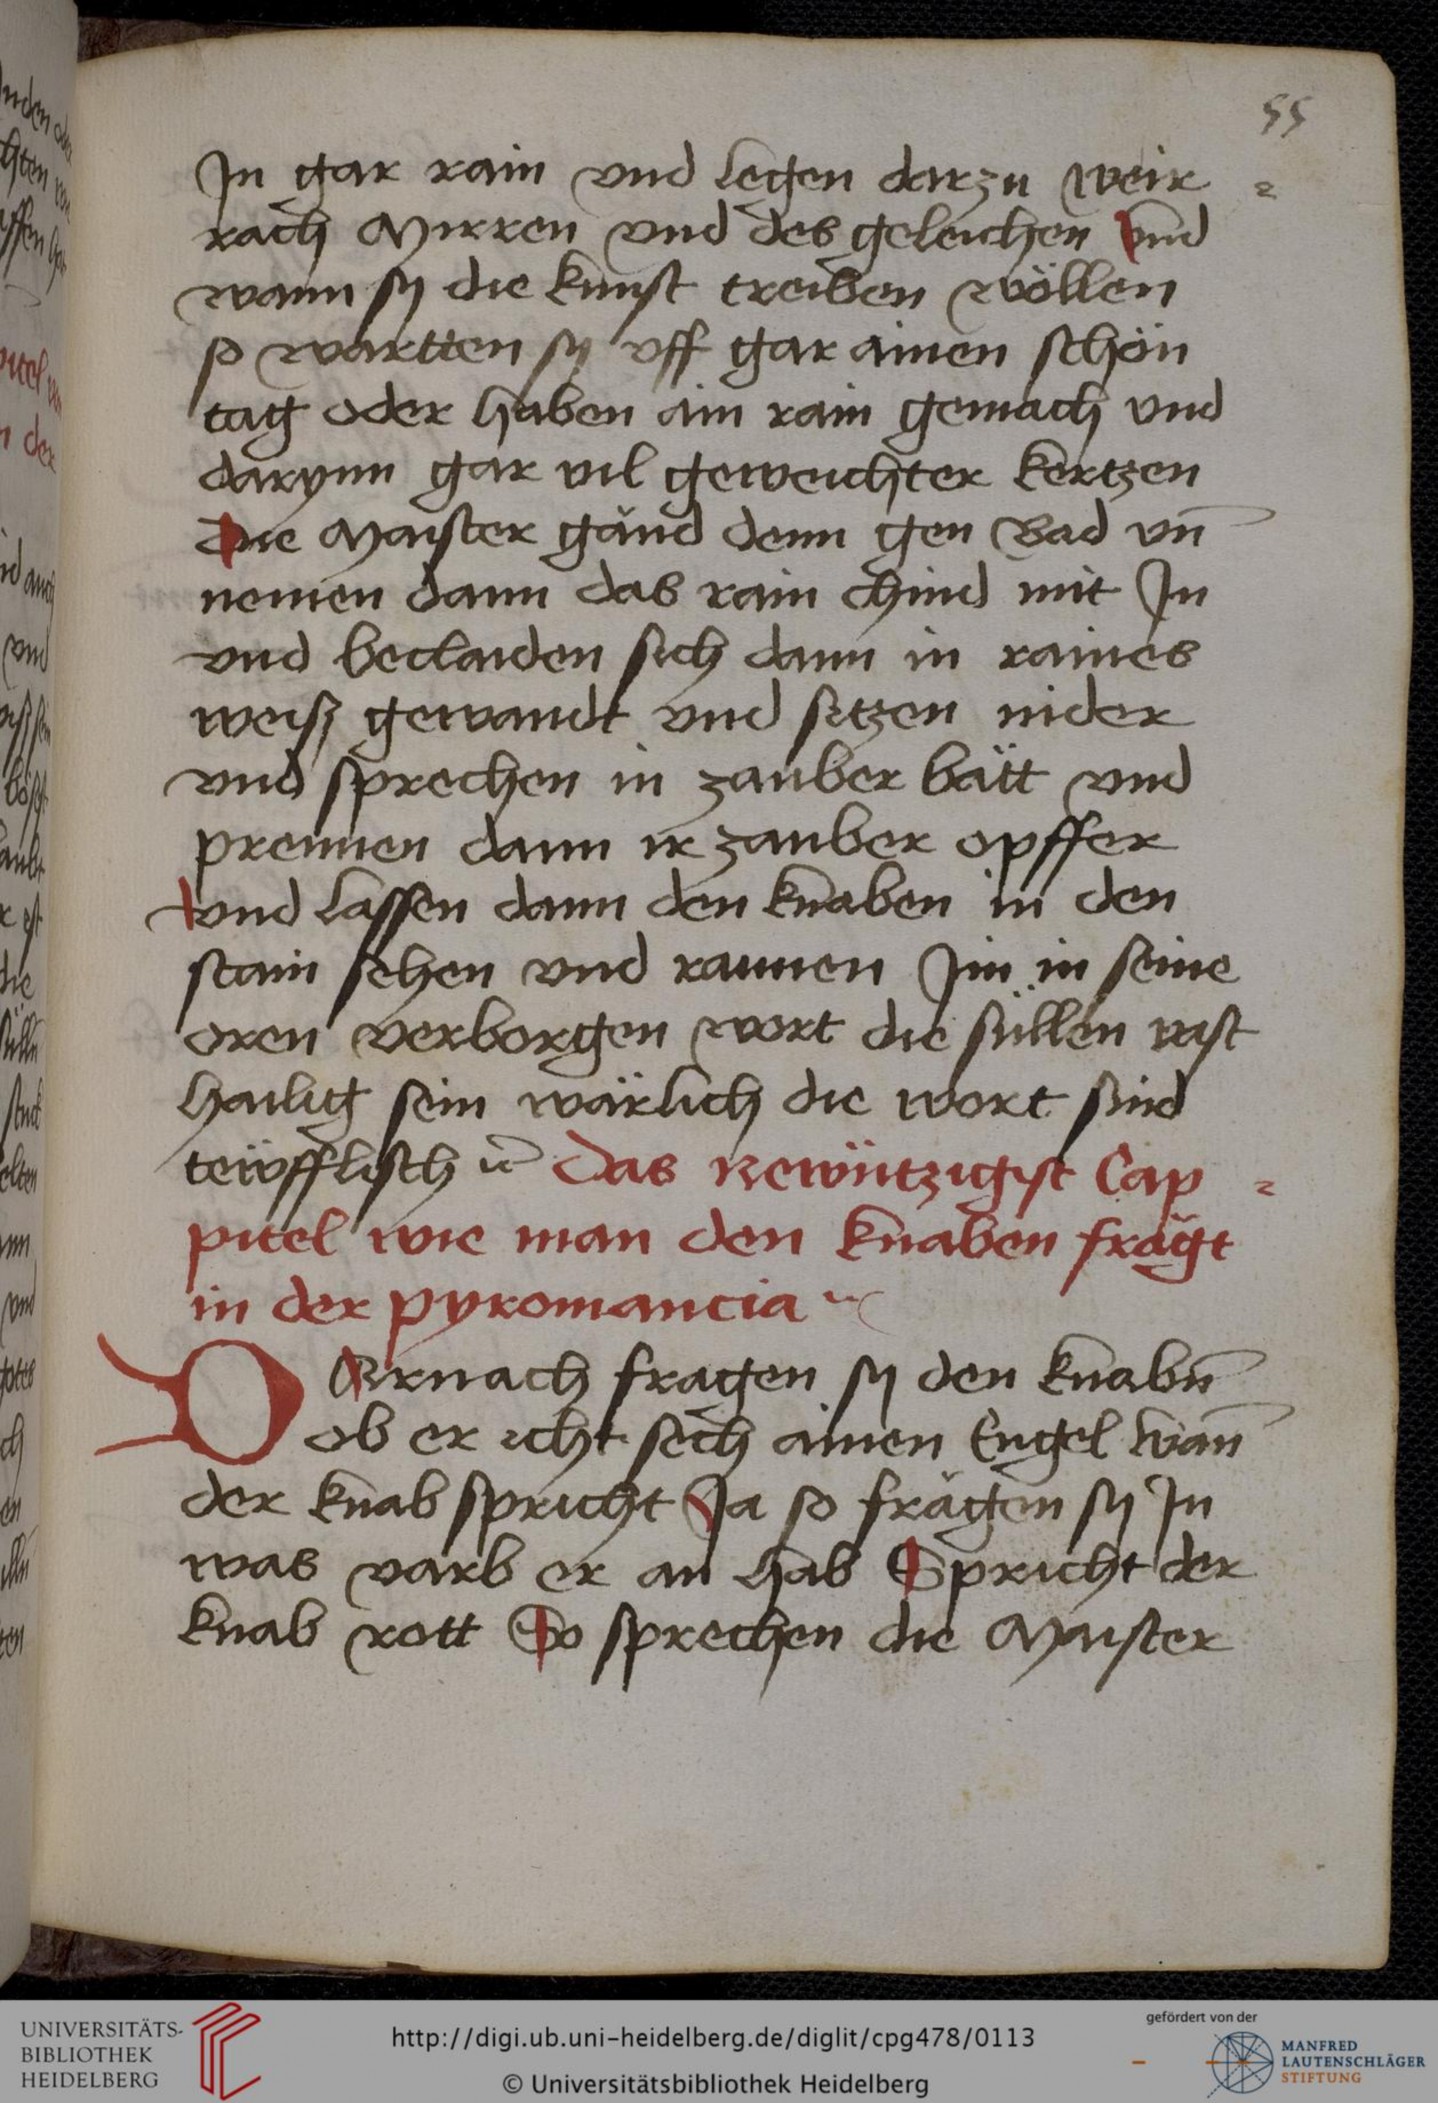 55
In gar rain vnd legen darzu weir=
rach Mirren vnd des geleichen vnd
wann sy die kunst treiben wöllen
so wartten sy vff gar ainen schön
tag oder haben ain rain gemach vnd
darynn gar vil geweichter kertzen
Die Maister gänd denn gen Bad vn̄
nemen dann das rain chind mit In
vnd beclaiden sich dann in raines
weiß gewandt vnd sitzen nider
vnd sprechen in zauber bätt vnd
prennen dann ir zauber opffer
vnd lassen dann den knaben in den
stain sehen vnd raunen Im in seine
oren verborgen wort die süllen vast
hailig sein wärlich die wort sind
teẅfflisch Das Newntzigist Cap=
pitel wie man den knaben frägt
in der pyromancia
DArnach fragen sy den knabn̄
ob er icht sech ainen Engel wan̄
der knab spricht Ja so frägen sy In
was varb er an hab Spricht der
knab rott So sprechen die Maister
UNIVERSITÄTS-
BIBLIOTHEK
HEIDELBERG
http://digi.ub.uni-heidelberg.de/diglit/cpg478/0113
© Universitätsbibliothek Heidelberg
gefördert von der
MANFRED
LAUTENSCHLÄGER
STIFTUNG